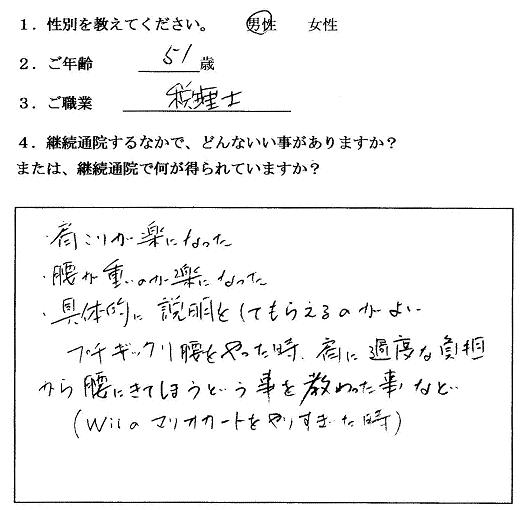 1．性別を教えてください。 男性 女性
2．ご年齢 51歳
3．ご職業 税理士
4．継続通院するなかで、どんないい事がありますか？
または、継続通院で何が得られていますか？
・肩こりが楽になった
・腰が重いのが楽になった
・具体的に説明をしてもらえるのがよい
プチギックリ腰をやった時、肩に過度な負担
から腰にきてしまうという事を教わった事など
(Wiiのマリオカートをやりすぎた時)